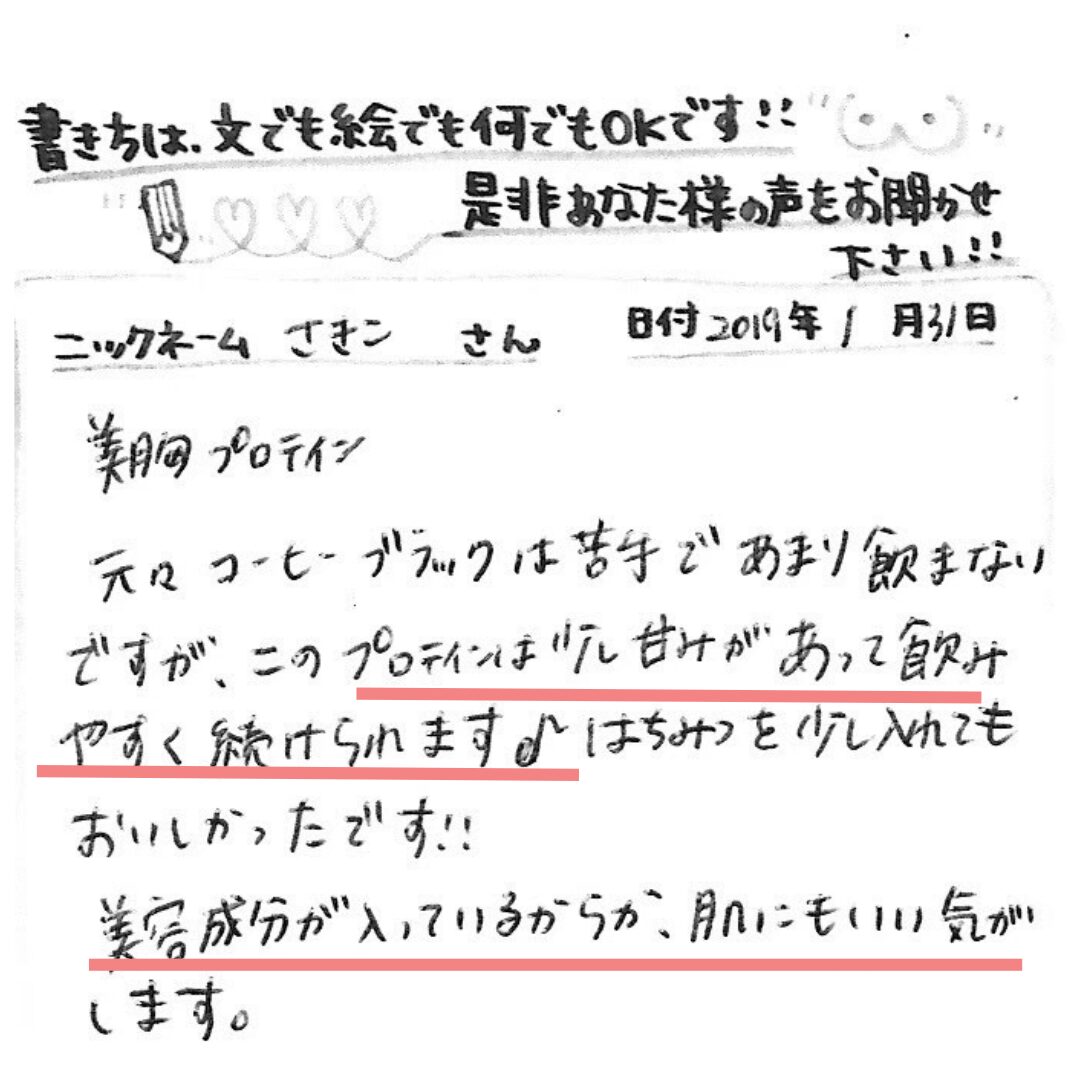 書きちは、文でも絵でも何でもOKです!!
是非あなた様の声をお聞かせ
下さい!!
ニックネーム さきこ さん 日付2019年1月31日
美胸プロテイン
元々コーヒーブラックは苦手であまり飲まない
ですが、このプロテインは少し甘みがあって飲み
やすく続けられます♪はちみつを少し入れても
おいしかったです!!
美容成分が入っているからか、肌にもいい気が
します。